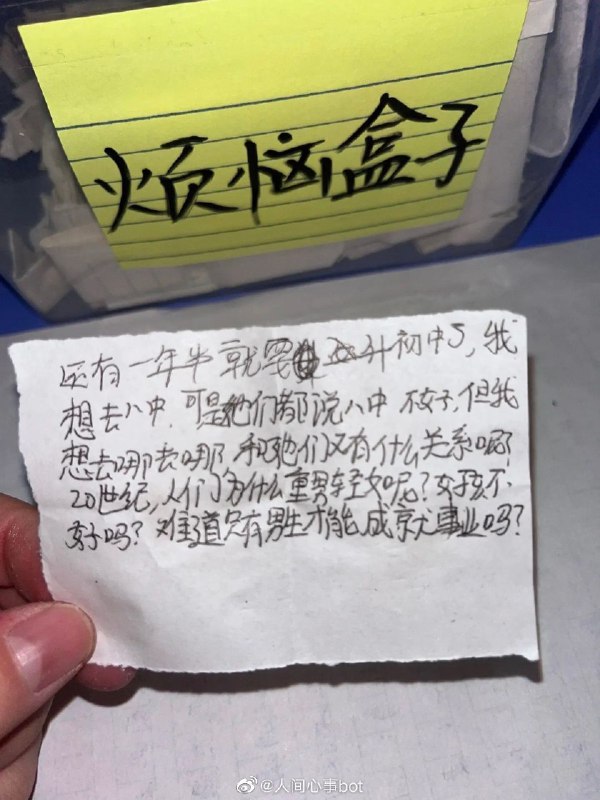 烦恼盒子
还有一年半就要升初中了,我
想去八中,可是她们都说八中不好,但我
想去哪去哪,和她们又有什么关系呢?
20世纪,人们为什么重男轻女呢?女孩不
好吗?难道只有男生才能成就事业吗?
@人间心事bot